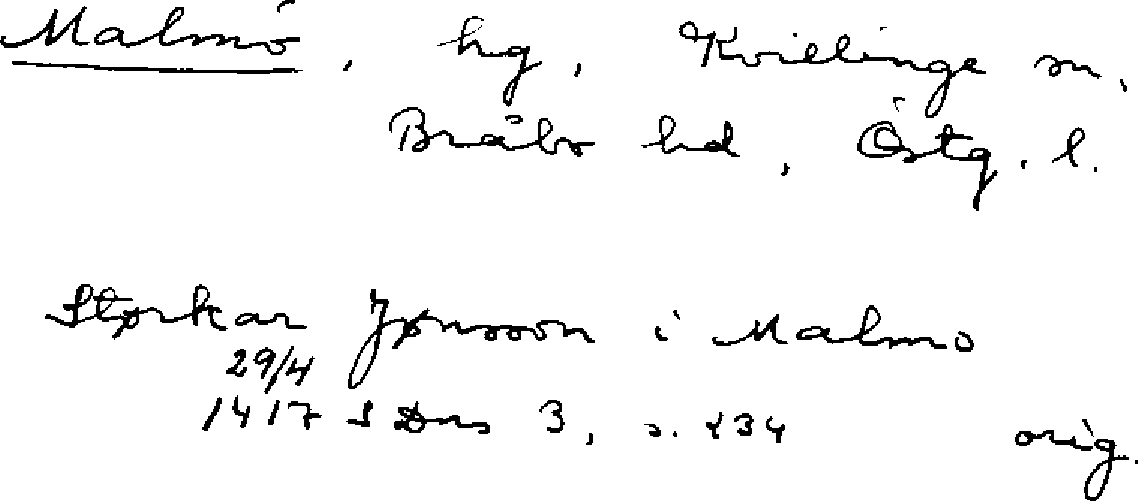 Malmö, hg, Kvillinge sn,
Bråbo hd, Östg. l.
Størkar Jønsson i Malmo
29/4
1417 SDns 3, s. 234 orig.